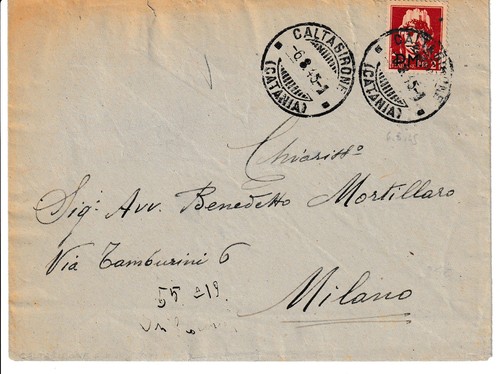 CALTAGIRONE
-6.8.45-1
(CATANIA)
CALTAGIRONE
45-1
(CATANIA)
6.8.45
Chiariss°
Sig. Avv. Benedetto Mortillaro
Via Tamburini 6
55 = 19
Milano